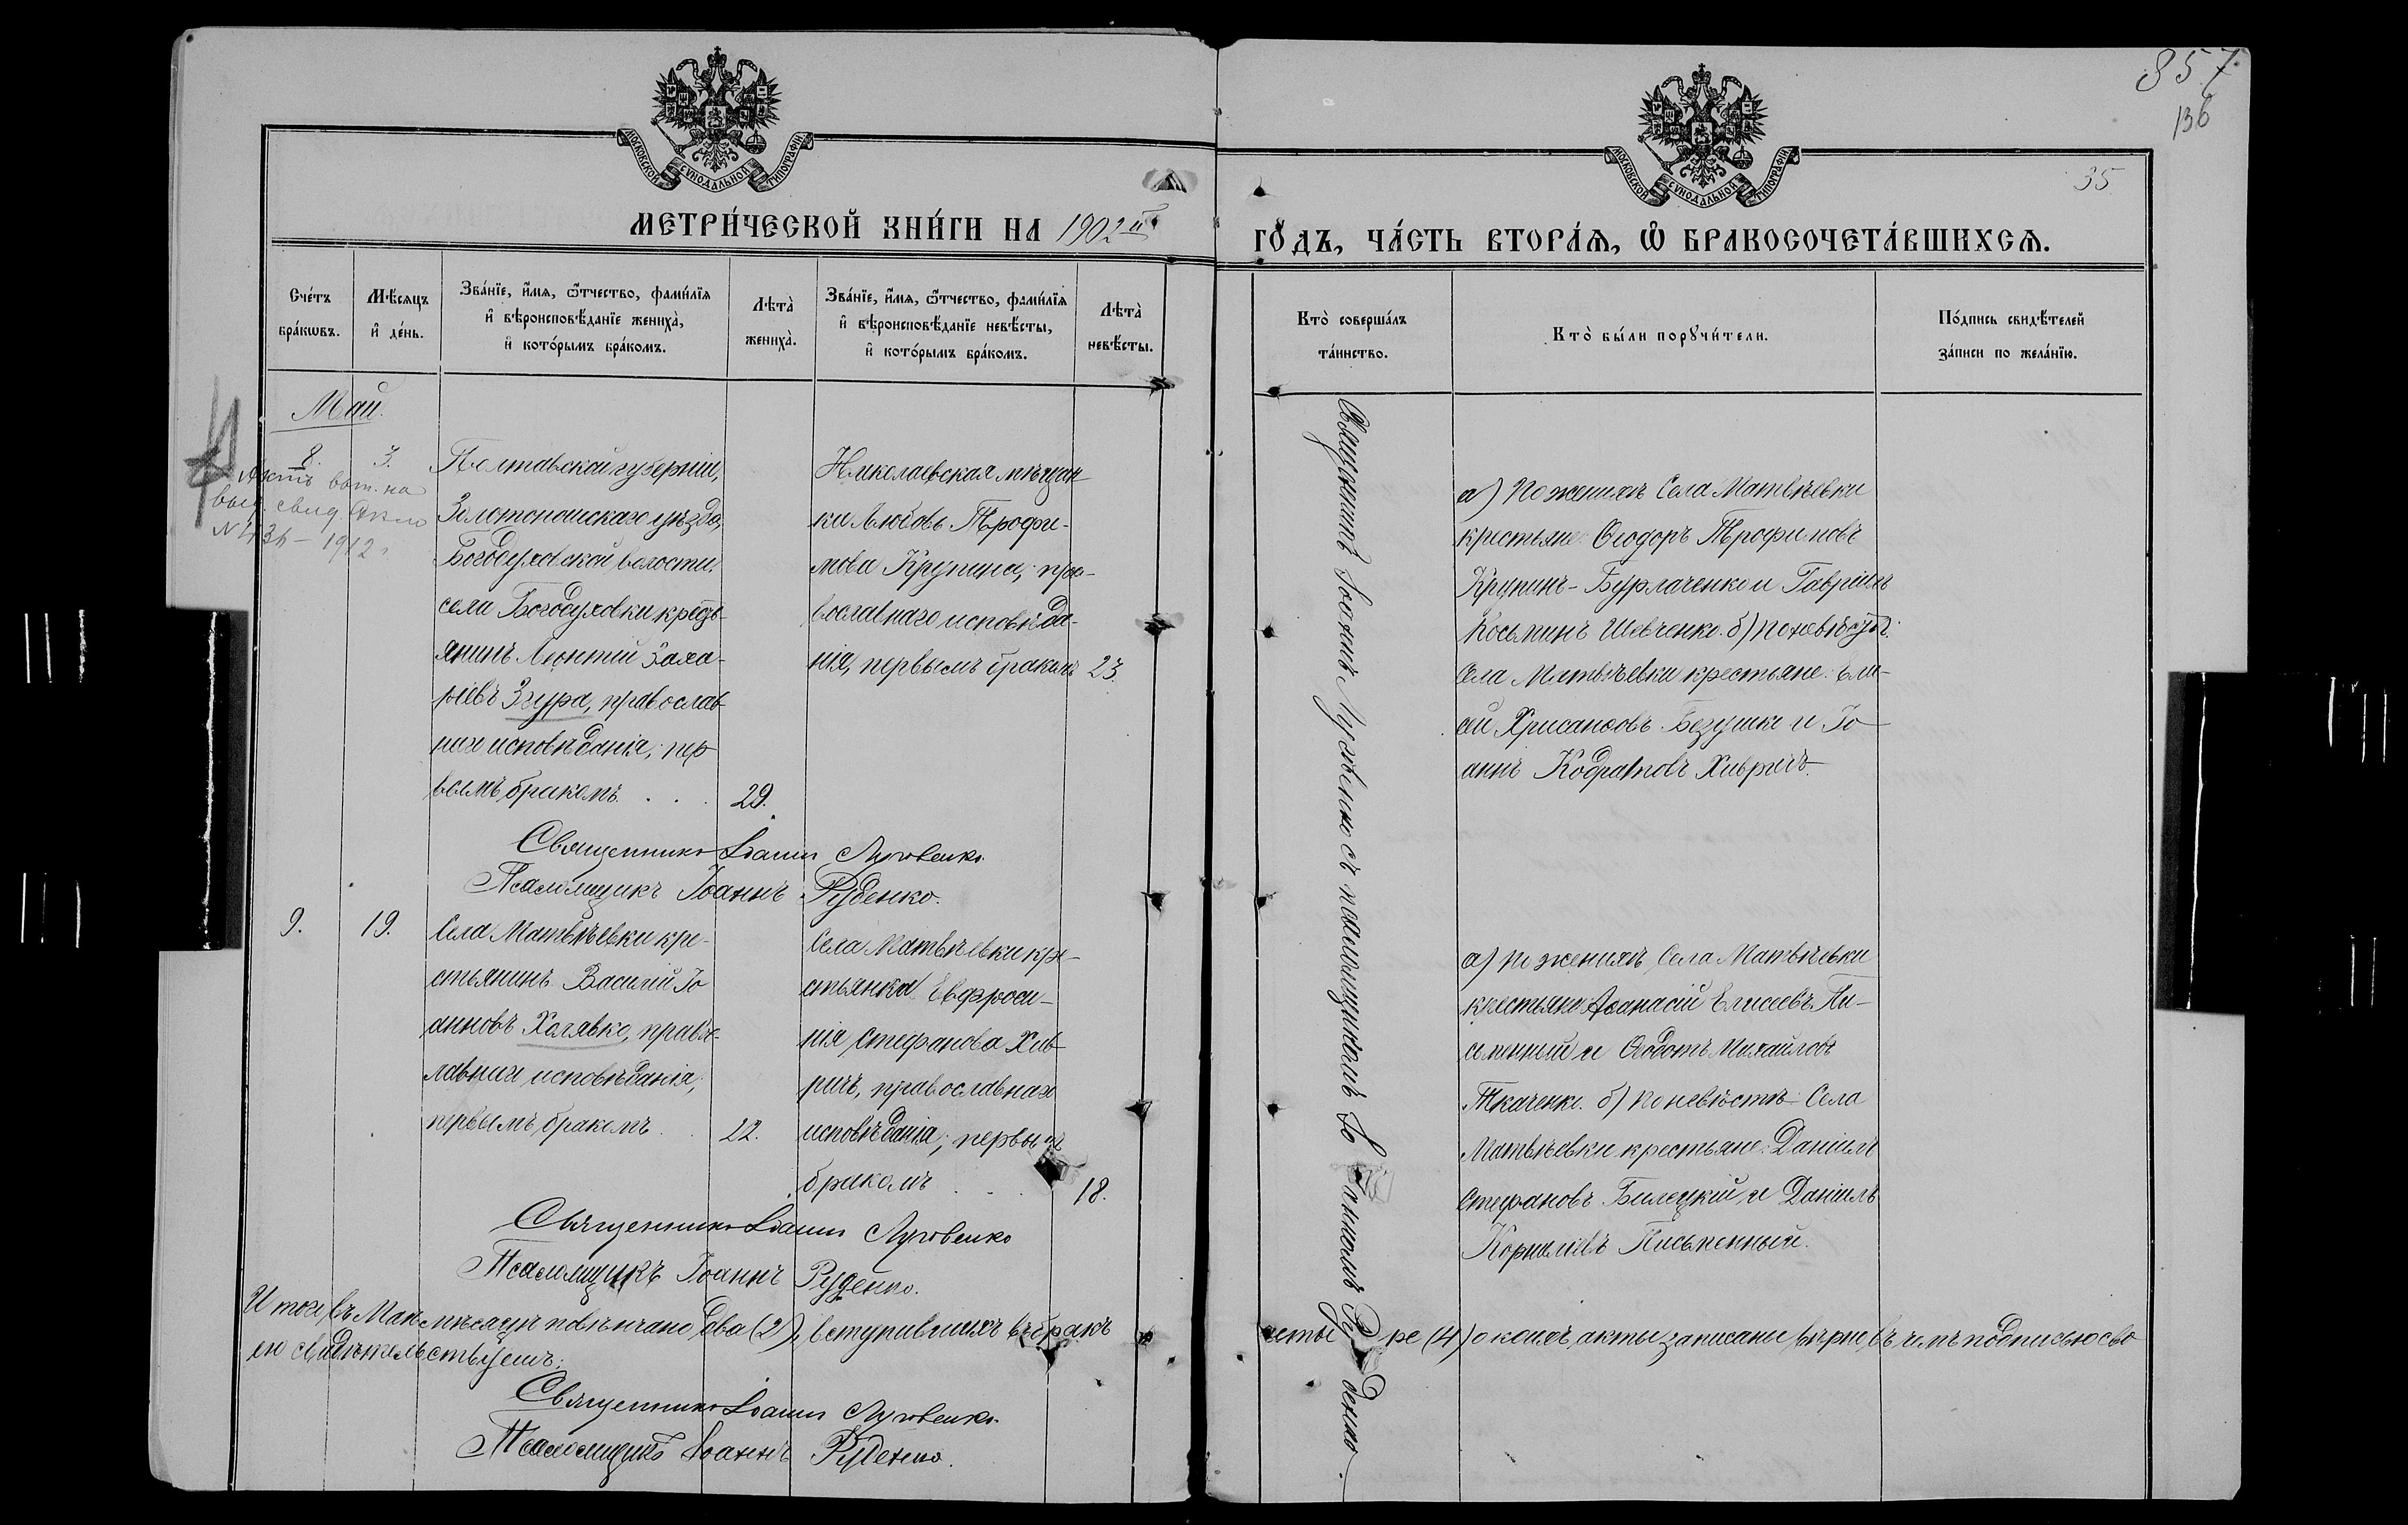 857
136
35
МОСКОВСКОЙ СѴНОДАЛЬНОЙ ТИПОГРАФІИ
МОСКОВСКОЙ СѴНОДАЛЬНОЙ ТИПОГРАФІИ
МЕТРИ́ЧЕСКОЙ КНИ́ГИ НА 1902й
ГО́ДЪ, ЧА́СТЬ ВТОРА́Я, Ѡ БРАКОСОЧЕТА́ВШИХСЯ.
Сче́тъ бра́кѡвъ.
Мѣ́сяцъ и҆ де́нь.
Зва́нїе, и҆́мя, ѻ҆́тчество, фами́лїя
и҆ вѣроисповѣ́данїе жениха̀,
и҆ кото́рымъ бра́комъ.
Лѣта̀ жениха̀.
Зва́нїе, и҆́мя, ѻ҆́тчество, фами́лїя
и҆ вѣроисповѣ́данїе невѣ́сты,
и҆ кото́рымъ бра́комъ.
Лѣта̀ невѣ́сты.
Кто̀ соверша́лъ та́инство.
Кто̀ бы́ли порꙋчи́тели.
По́дпись свидѣ́телей за́писи по жела́нїю.
Май.
8. 3.
выд. свид.
1912 г.
Полтавской губерніи,
Золотоношскаго уѣзда,
Богодуховской волости,
села Богодуховки кресть-
янинъ Леонтій Заха-
ріевъ Згура, православ-
наго исповѣданія; пер
вымъ бракомъ. . . 29.
Николаевская мѣщан
ка Любовь Трофи-
мова Крупина, пра-
вославнаго исповѣда-
нія, первымъ бракомъ 23.
а) По женихѣ Села Матвѣевки
крестьяне: Ѳеодоръ Трофимовъ
Крупинъ-Бурлаченко и Гавріилъ
Косьминъ Шевченко. б) по невѣстѣ:
Села Матвѣевки крестьяне: Ели-
сей Хрисанѳовъ Безушко и Іо
аннъ Кодратовъ Хивричъ.
Священникъ Іоаннъ Луговенко съ псаломщикомъ Іоанномъ Руденко.
Священникъ Іоаннъ Луговенко
Псаломщикъ Іоаннъ Руденко.
9. 19.
Села Матвѣевки кре-
стьянинъ Василій Іо
анновъ Халявко, правос-
лавнаго исповѣданія,
первымъ бракомъ . . 22.
Села Матвѣевки кре-
стьянка Евфроси-
нія Стефанова Хив-
ричъ, православнаго
исповѣданія; первымъ
бракомъ . . . 18.
а) по женихѣ Села Матвѣевки
крестьяне Аѳанасій Елисеевъ Пи-
сьменный и Ѳеодотъ Михайловъ
Ткаченко. б) по невѣстѣ Села
Матвѣевки крестьяне: Даніилъ
Стефановъ Билецкій и Даніилъ
Корниліевъ Письменный.
Священникъ Іоаннъ Луговенко
Псаломщикъ Іоаннъ Руденко.
Итого въ Маѣ мѣсяцѣ повѣнчано два (2), вступившихъ въ бракъ четыре (4) о комъ акты записаны вѣрно, въ чемъ подписью сво
ею свидѣтельствуемъ:
Священникъ Іоаннъ Луговенко
Псаломщикъ Іоаннъ Руденко.